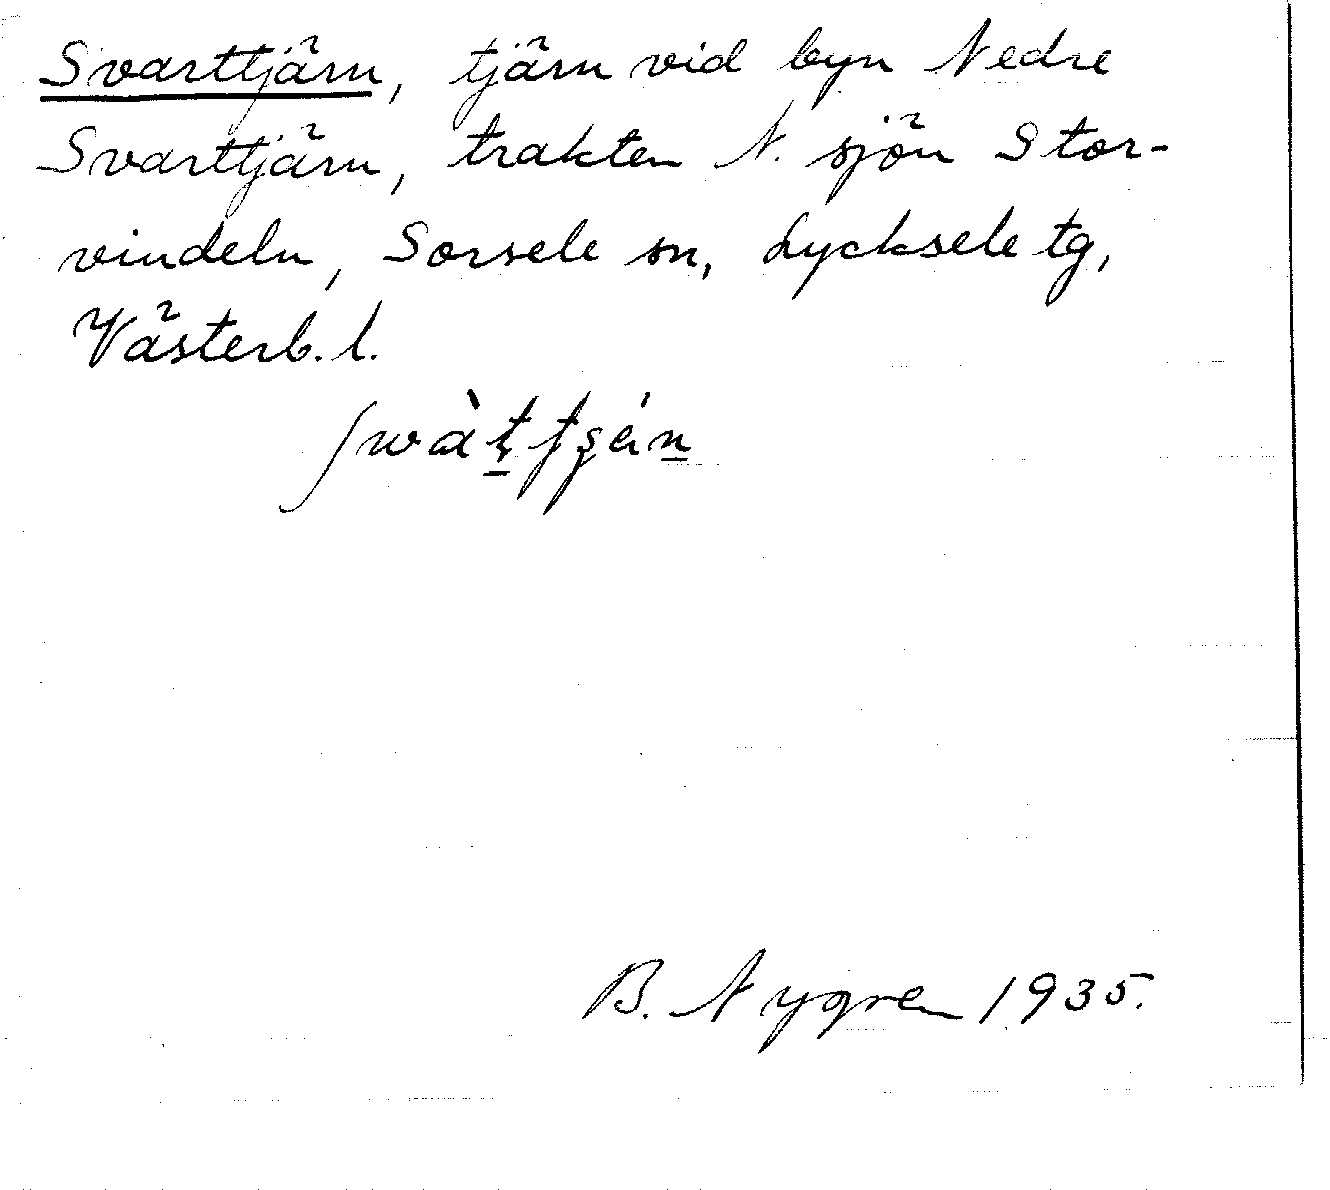 Svarttjärn, tjärn vid byn Nedre
Svarttjärn, trakten N. sjön Stor-
vindeln, Sorsele sn, Lycksele tg,
Västerb. l.
B. Nygren 1935.